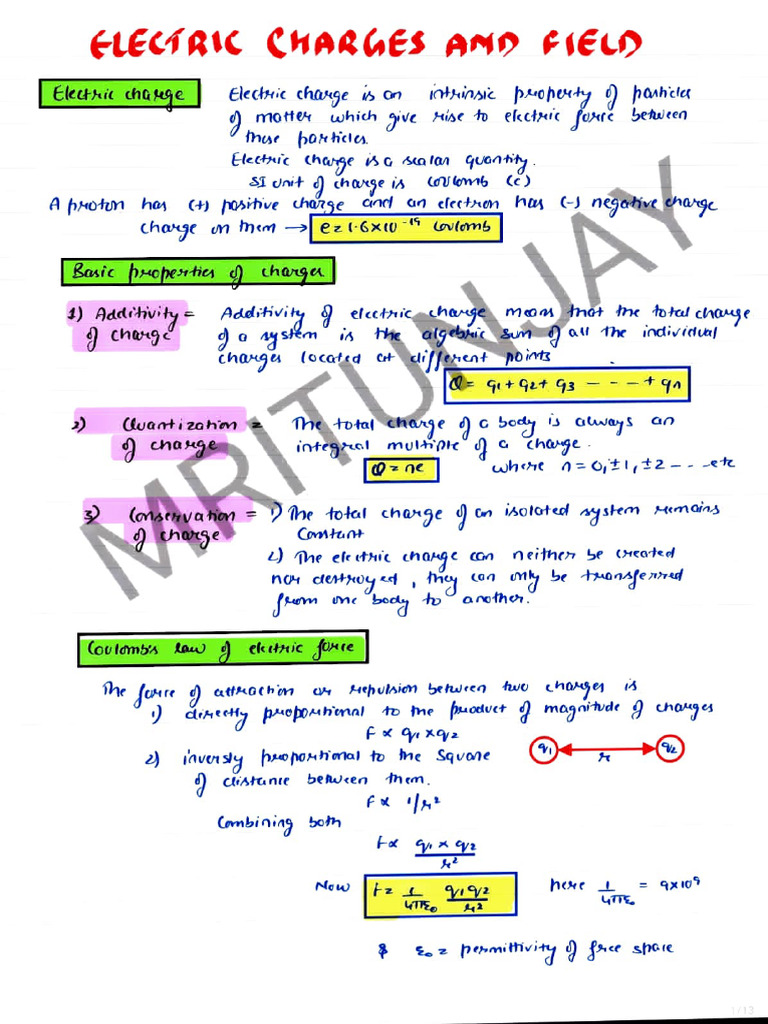 ELECTRIC CHARGES AND FIELD
Electric charge
Electric charge is an intrinsic property of particles
of matter which give rise to electric force between
these particles.
Electric charge is a scalar quantity.
SI unit of charge is coulomb (c)
A proton has (+) positive charge and an electron has (-) negative charge
charge on them → e = 1.6×10⁻¹⁹ coulomb
Basic properties of charges
1) Additivity = Additivity of electric charge means that the total charge
of charge of a system is the algebric sum of all the individual
charges located at different points
Q = q1 + q2 + q3 - - - - + qn
2) Quantization = The total charge of a body is always an
of charge integral multiple of a charge.
Q = ne where n = 0, ±1, ±2 - - - etc
3) Conservation = 1) The total charge of an isolated system remains
of charge Constant
2) The electric charge can neither be created
nor destroyed, they can only be transferred
from one body to another.
Coulomb's law of electric force
The force of attraction or repulsion between two charges is
1) directly proportional to the product of magnitude of charges
F ∝ q1 × q2
2) inversly proportional to the square
of distance between them.
q1 r q2
F ∝ 1/r²
Combining both
F ∝ q1 × q2 / r²
Now F = 1/4πε0 q1q2/r² here 1/4πε0 = 9×10⁹
& ε0 = permittivity of free space
MRITUNJAY
1/13